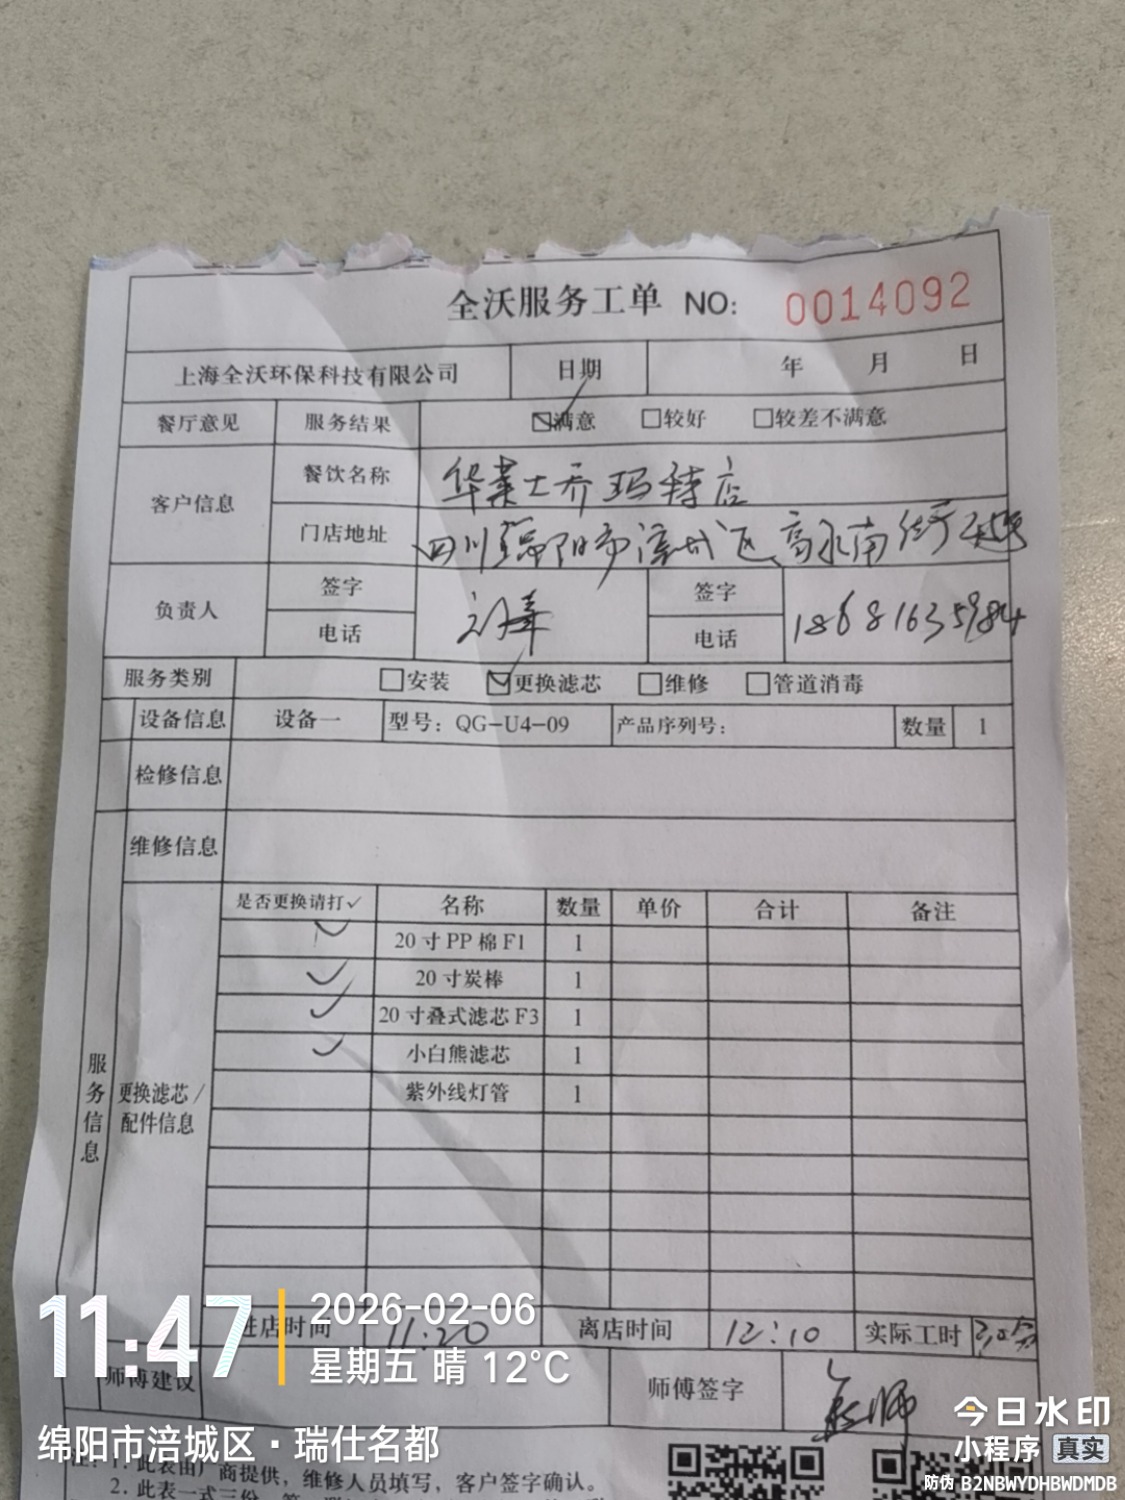 全沃服务工单 NO: 0014092
上海全沃环保科技有限公司 日期 年 月 日
餐厅意见 服务结果 ☑满意 □较好 □较差不满意
客户信息 餐饮名称 华莱士乔玛特店
门店地址 四川绵阳市涪城区高水南街
负责人 签字 签字
电话 电话 18681635984
服务类别 □安装 ☑更换滤芯 □维修 □管道消毒
设备信息 设备一 型号：QG-U4-09 产品序列号： 数量 1
检修信息
维修信息
服务信息
更换滤芯/
配件信息
是否更换请打✓ 名称 数量 单价 合计 备注
✓ 20寸PP棉F1 1
✓ 20寸炭棒 1
✓ 20寸叠式滤芯F3 1
✓ 小白熊滤芯 1
紫外线灯管 1
进店时间 11:20 离店时间 12:10 实际工时
师傅建议 师傅签字
注：1. 此表由厂商提供，维修人员填写，客户签字确认。
2. 此表一式三份，第
11:47
2026-02-06
星期五 晴 12℃
绵阳市涪城区·瑞仕名都
今日水印
小程序 真实
防伪 B2NBWYDHBWDMDB